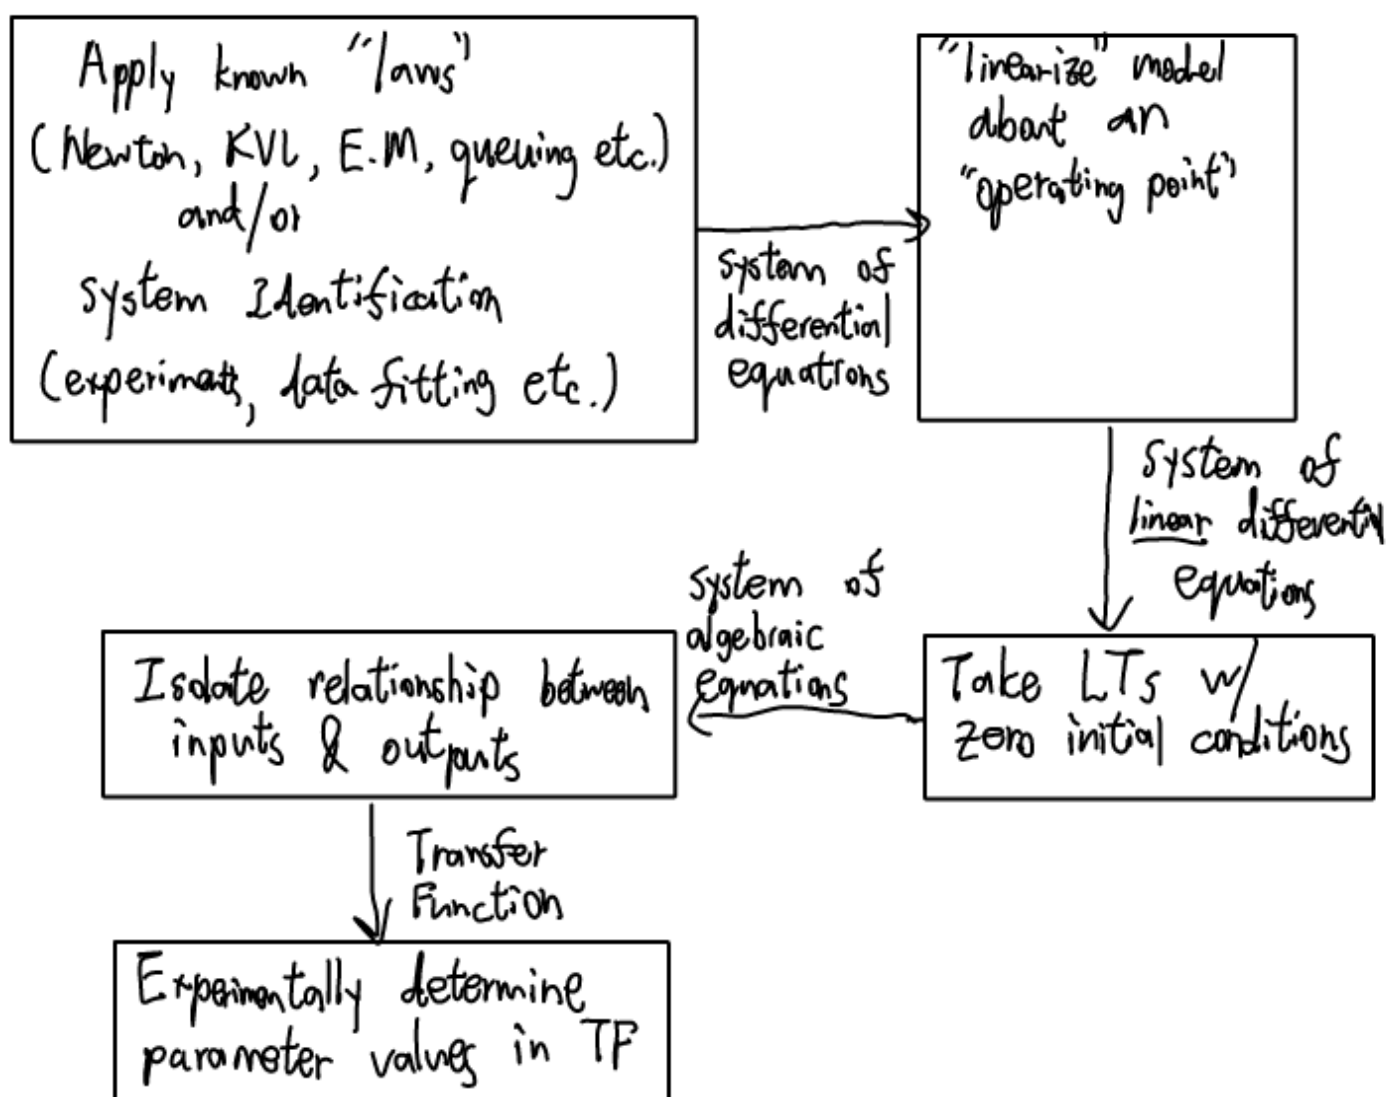 Apply known "laws"
(Newton, KVL, E.M, queuing etc.)
and/or
System Identification
(experiments, data fitting etc.)
system of
differential
equations
"linearize" model
about an
"operating point"
system of
linear differential
equations
Take LTs w/
zero initial conditions
system of
algebraic
equations
Isolate relationship between
inputs & outputs
Transfer
Function
Experimentally determine
parameter values in TF